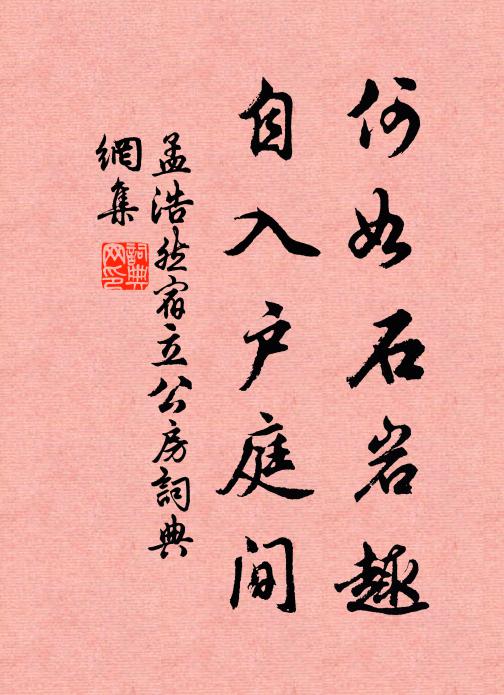 何如石岩趣
自入户庭间
孟浩然宿立公房詞典
網集
詞典
网印